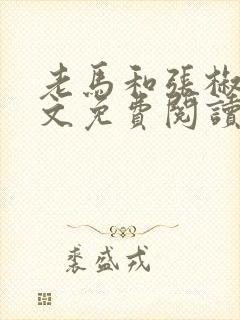 老馬和張椒
文免費閱讀
裘盛戎